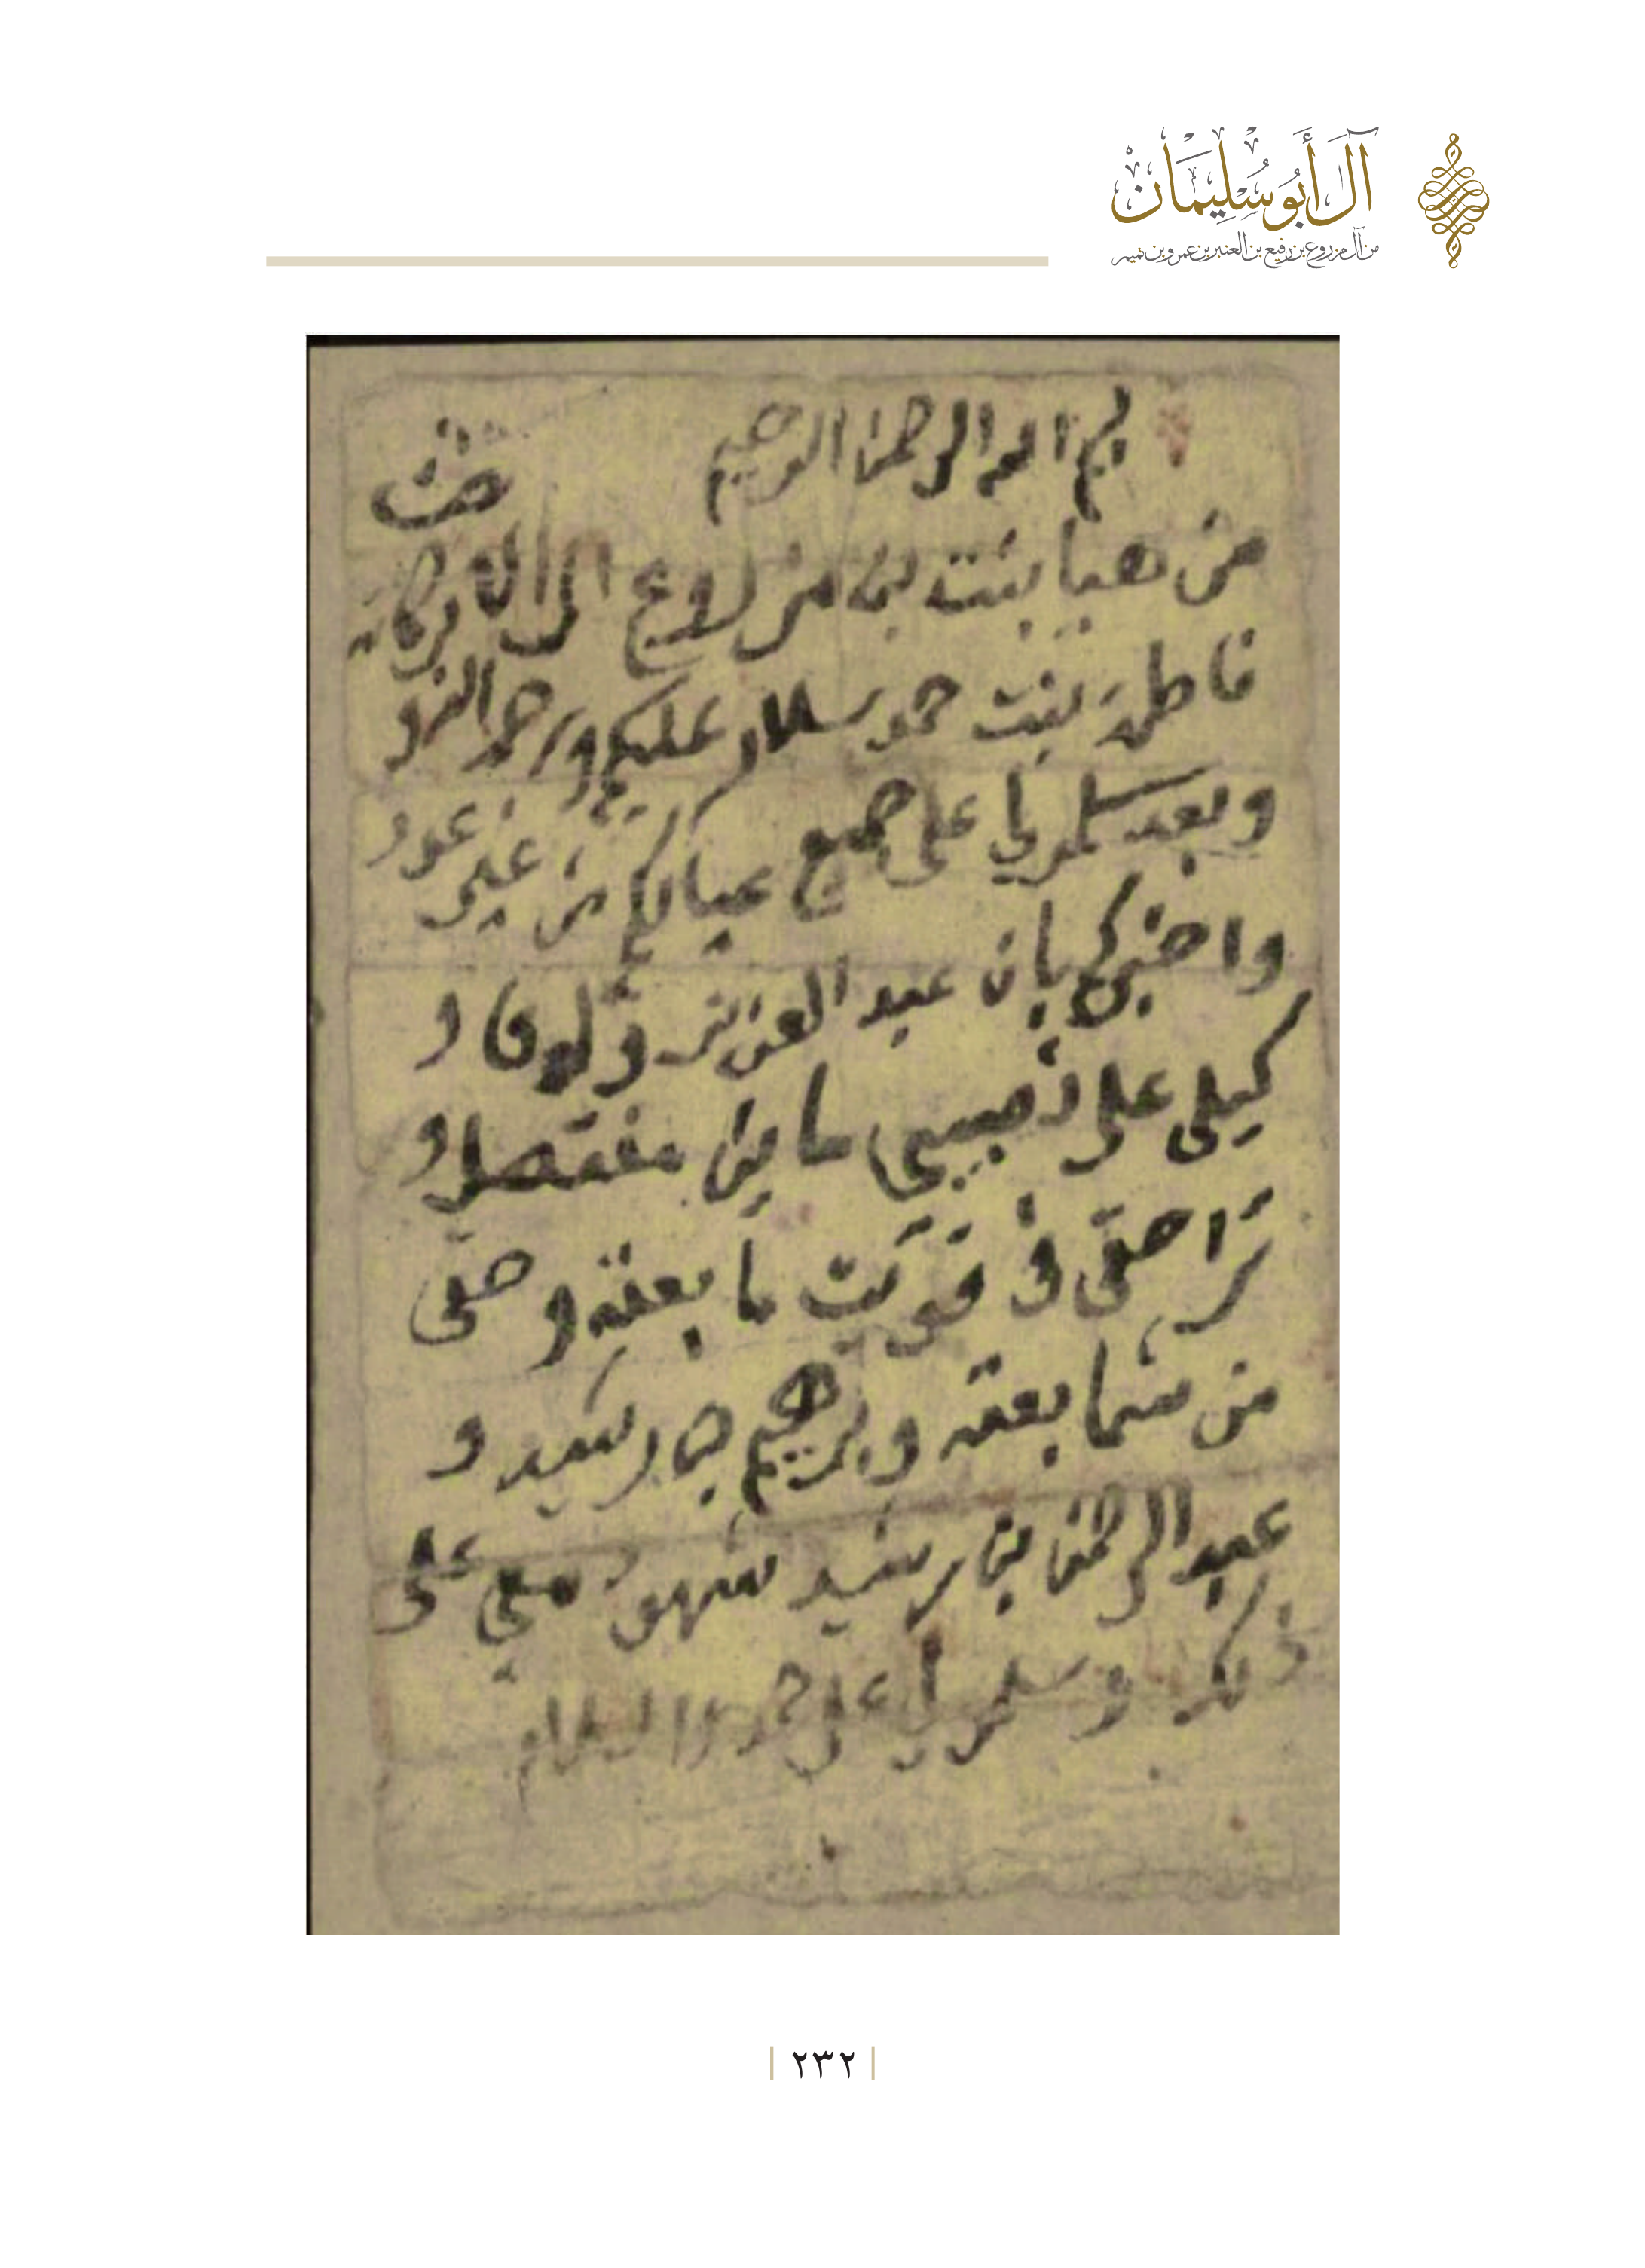 آل أبو سليمان
من آل مزروع بن رفيع بن العنبر بن عمرو بن تميم
بسم الله الرحمن الرحيم
من هيا بنت بن مزروع الى
فاطمه بنت حمد سلام عليكم ورحمة الله و
وبعد سلمولي على جميع عيالكم من غير
واخبركم بان عبد العزيز و
كيلي على ما بين و
ترا حقي في ما بعته وحقي
من بعته وبرهيم بن رشيد و
عبد الرحمن بن رشيد شهود معي على
ذلك وسلمولي على حمد والسلام
٢٣٢